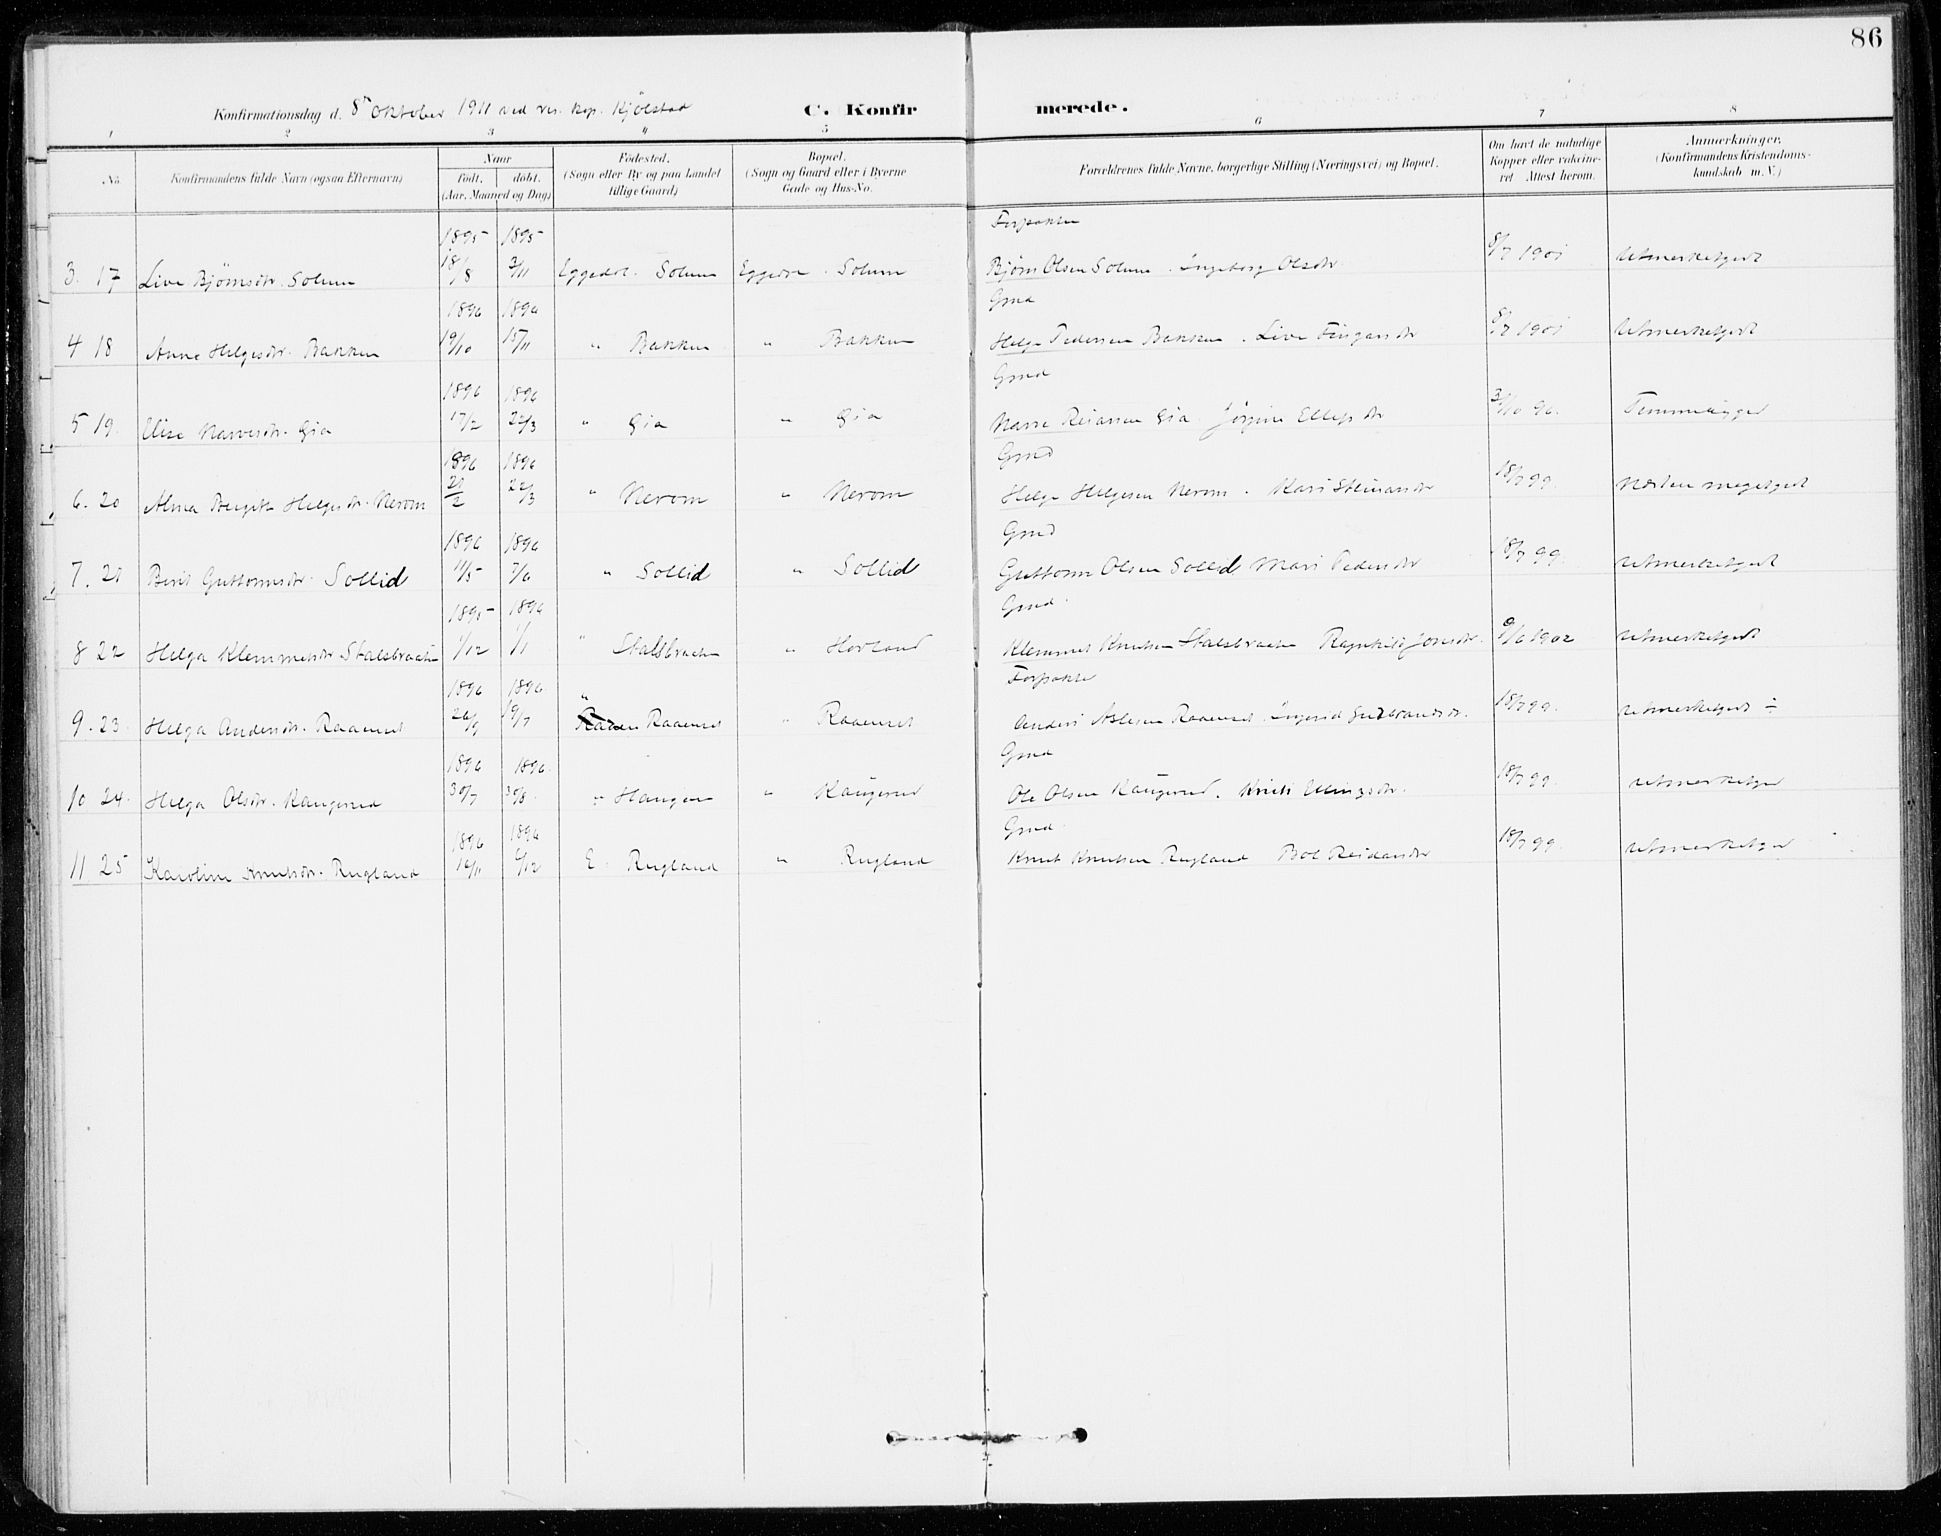 86
Konfirmationsdag d. 8de Oktober 1911 ved res. kap. Kjölstad C. Konfirmerede.
1 2 3 4 5 6 7 8
No. Konfirmandens fulde Navn (ogsaa Efternavn) Naar født, døbt. (Aar, Maaned og Dag) Fødested. (Sogn eller By og paa Landet tillige Gaard) Bopæl. (Sogn og Gaard eller i Byerne Gade og Hus-No. Forældrenes fulde Navne, borgerlige Stilling (Næringsvei) og Bopæl. Om havt de naturlige Kopper eller vaccineret. Attest herom. Anmærkninger. (Konfirmandens Kristendomskundskab m. V.)
1895 1895 Forpakter
3. 17 Live Bjørnsdr. Solum 18/8 3/11 Eggedal. Solum Eggedal. Solum Bjørn Olsen Solum. Ingeborg Olsdr. 8/7 1901 Utmerketgodt
1896 1896 Grud
4 18 Anne Helgesdr. Bakken 19/10 15/11 " Bakken " Bakken Helge Pedersen Bakken. Live Fingarsdr 8/7 1901 Utmerketgodt
1896 1896 Grud
5 19. Elise Narvesdr. Gia 17/2 22/3 " Gia " Gia Narve Reiarsen Gia. Jørgine Ellefsdr 3/10 96. Temmeliggod
1896 1896 Grud
6. 20 Alma Birgitte Helgesdr. Nerom 21/2 22/3 " Nerom " Nerom Helge Helgesen Nerom. Kari Steinarsdr 18/7 99. Næsten megetgodt
1896 1896 Grud
7. 21 Berit Guttormsdr. Sollid 11/5 7/6 " Sollid " Sollid Guttorm Olsen Sollid Mari Pedersdr 18/7 99. Utmerketgodt
1895 1896 Grud.
8 22 Helga Klemmetsdr Stalsbraaten 1/12 1/1 " Stalsbraaten " Hovland Klemmet Knutsen Stalsbraaten Ragnhild Jonsdr. 9/6 1902 Utmerketgodt
1896 1896 Forpakter
9. 23. Helga Andersdr. Raaenset 26/5 19/7 " Raaenset " Raaenset Anders Aslesen Raaenset. Ingerid Gudbrandsdr. 18/7 99. Utmerketgodt ÷
1896 1896. Grud
10 24. Helga Olsdr. Kaugerud 30/7 30/8. " Haugen " Kaugerud Ole Olsen Kaugerud. Kristi Ellingsdr. 18/7 99. Utmerketgod
1896 1896 Grud.
11 25 Karoline Knutsdr. Rugland 16/11 6/12 E. Rugland " Rugland Knut Knutsen Rugland Bol Reidarsdr 18/7 99. Utmerketgod